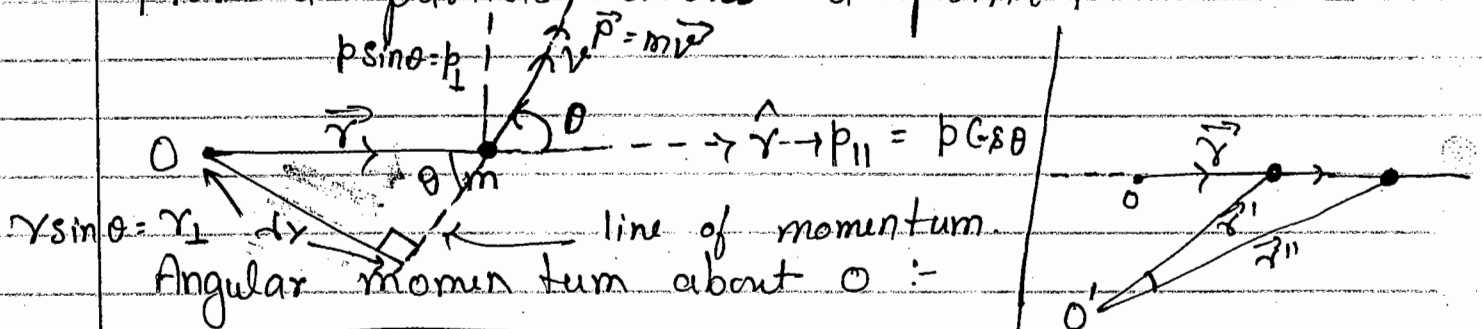 p sinθ = p⊥
v⃗ p⃗ = mv⃗
O r⃗ θ r̂ → p∥ = p Cosθ
θ m
r sinθ = r⊥ line of momentum.
Angular momentum about O :-
r⃗
o
r⃗'
r⃗"
O'